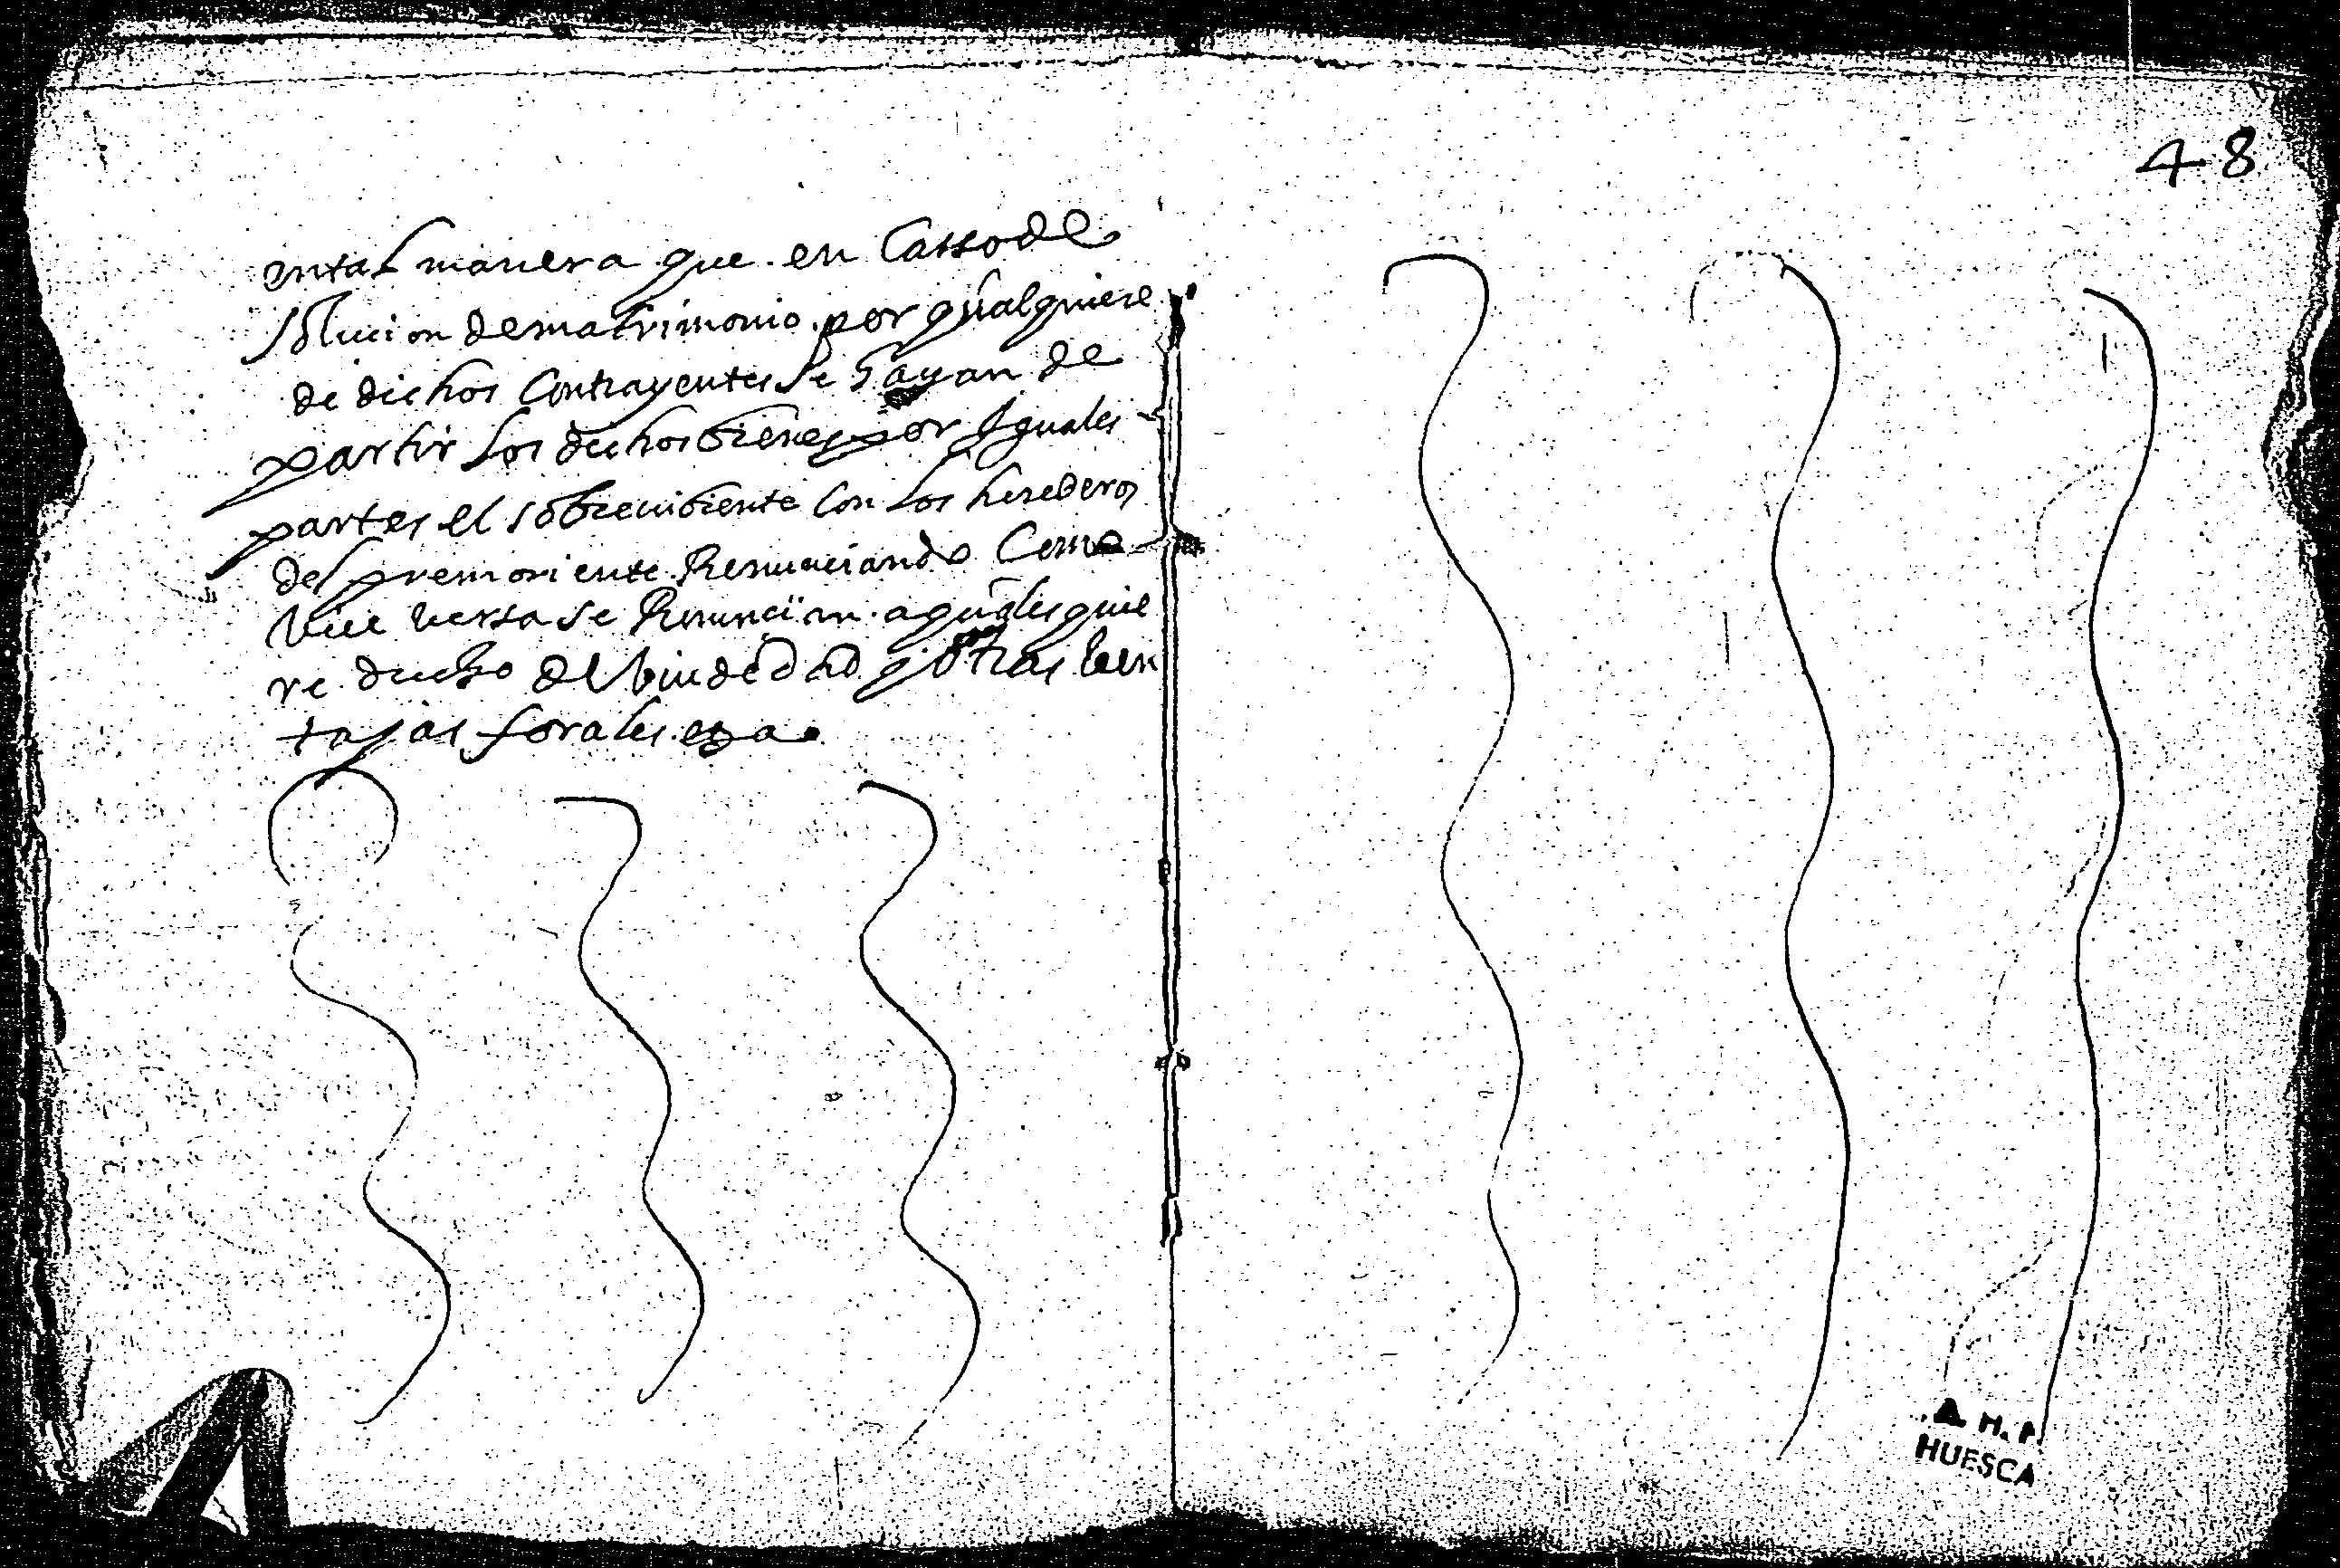 48
en tal manera que en Casso de
solucion de matrimonio por qualquiere
de dichos Contrayentes se hayan de
partir los dichos bienes por Iguales
partes el sobreuibiente Con los herederos
del premoriente Renunciando Como
vice versa se Renuncian a quales quie
re drecho de biudedad y otras ben
tajas forales
A. H. P.
HUESCA